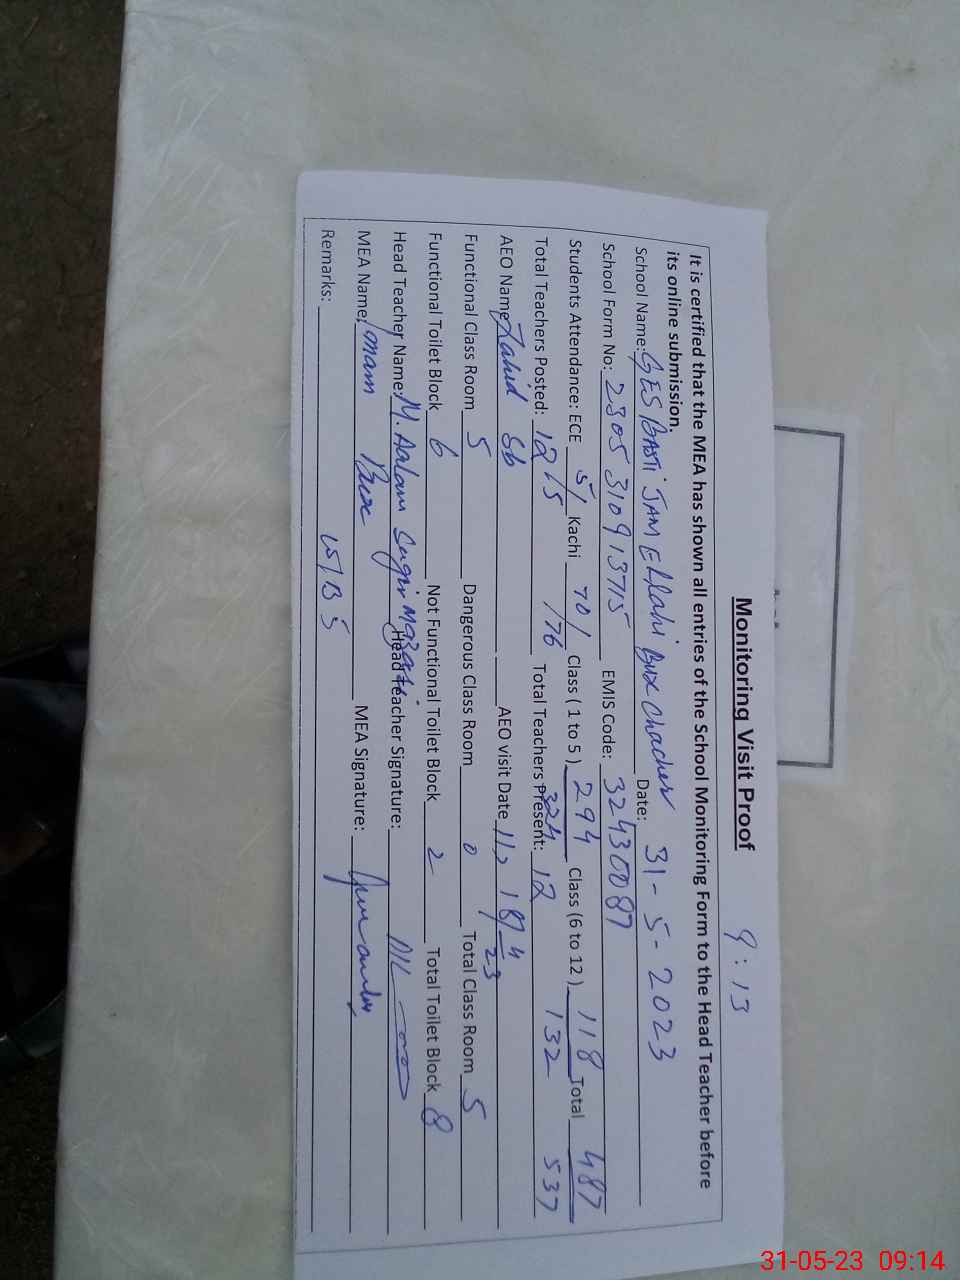 Monitoring Visit Proof 9:13
It is certified that the MEA has shown all entries of the School Monitoring Form to the Head Teacher before
its online submission.
School Name: GES BASTI JAM Ellahi Bux Chacher Date: 31-5-2023
School Form No: 2305310913715 EMIS Code: 32430087
Students Attendance: ECE 5/ Kachi 70/ Class ( 1 to 5 ) 294 Class (6 to 12 ) 118 Total 487
5 /76 324 132 537
Total Teachers Posted: 12 Total Teachers Present: 12
AEO Name Zahid Sb AEO visit Date 18/4 23
Functional Class Room 5 Dangerous Class Room 0 Total Class Room 5
Functional Toilet Block 6 Not Functional Toilet Block 2 Total Toilet Block 8
Head Teacher Name: M. Aslam Head Teacher Signature:
MEA Name: Imam Bux MEA Signature:
Remarks:
31-05-23 09:14